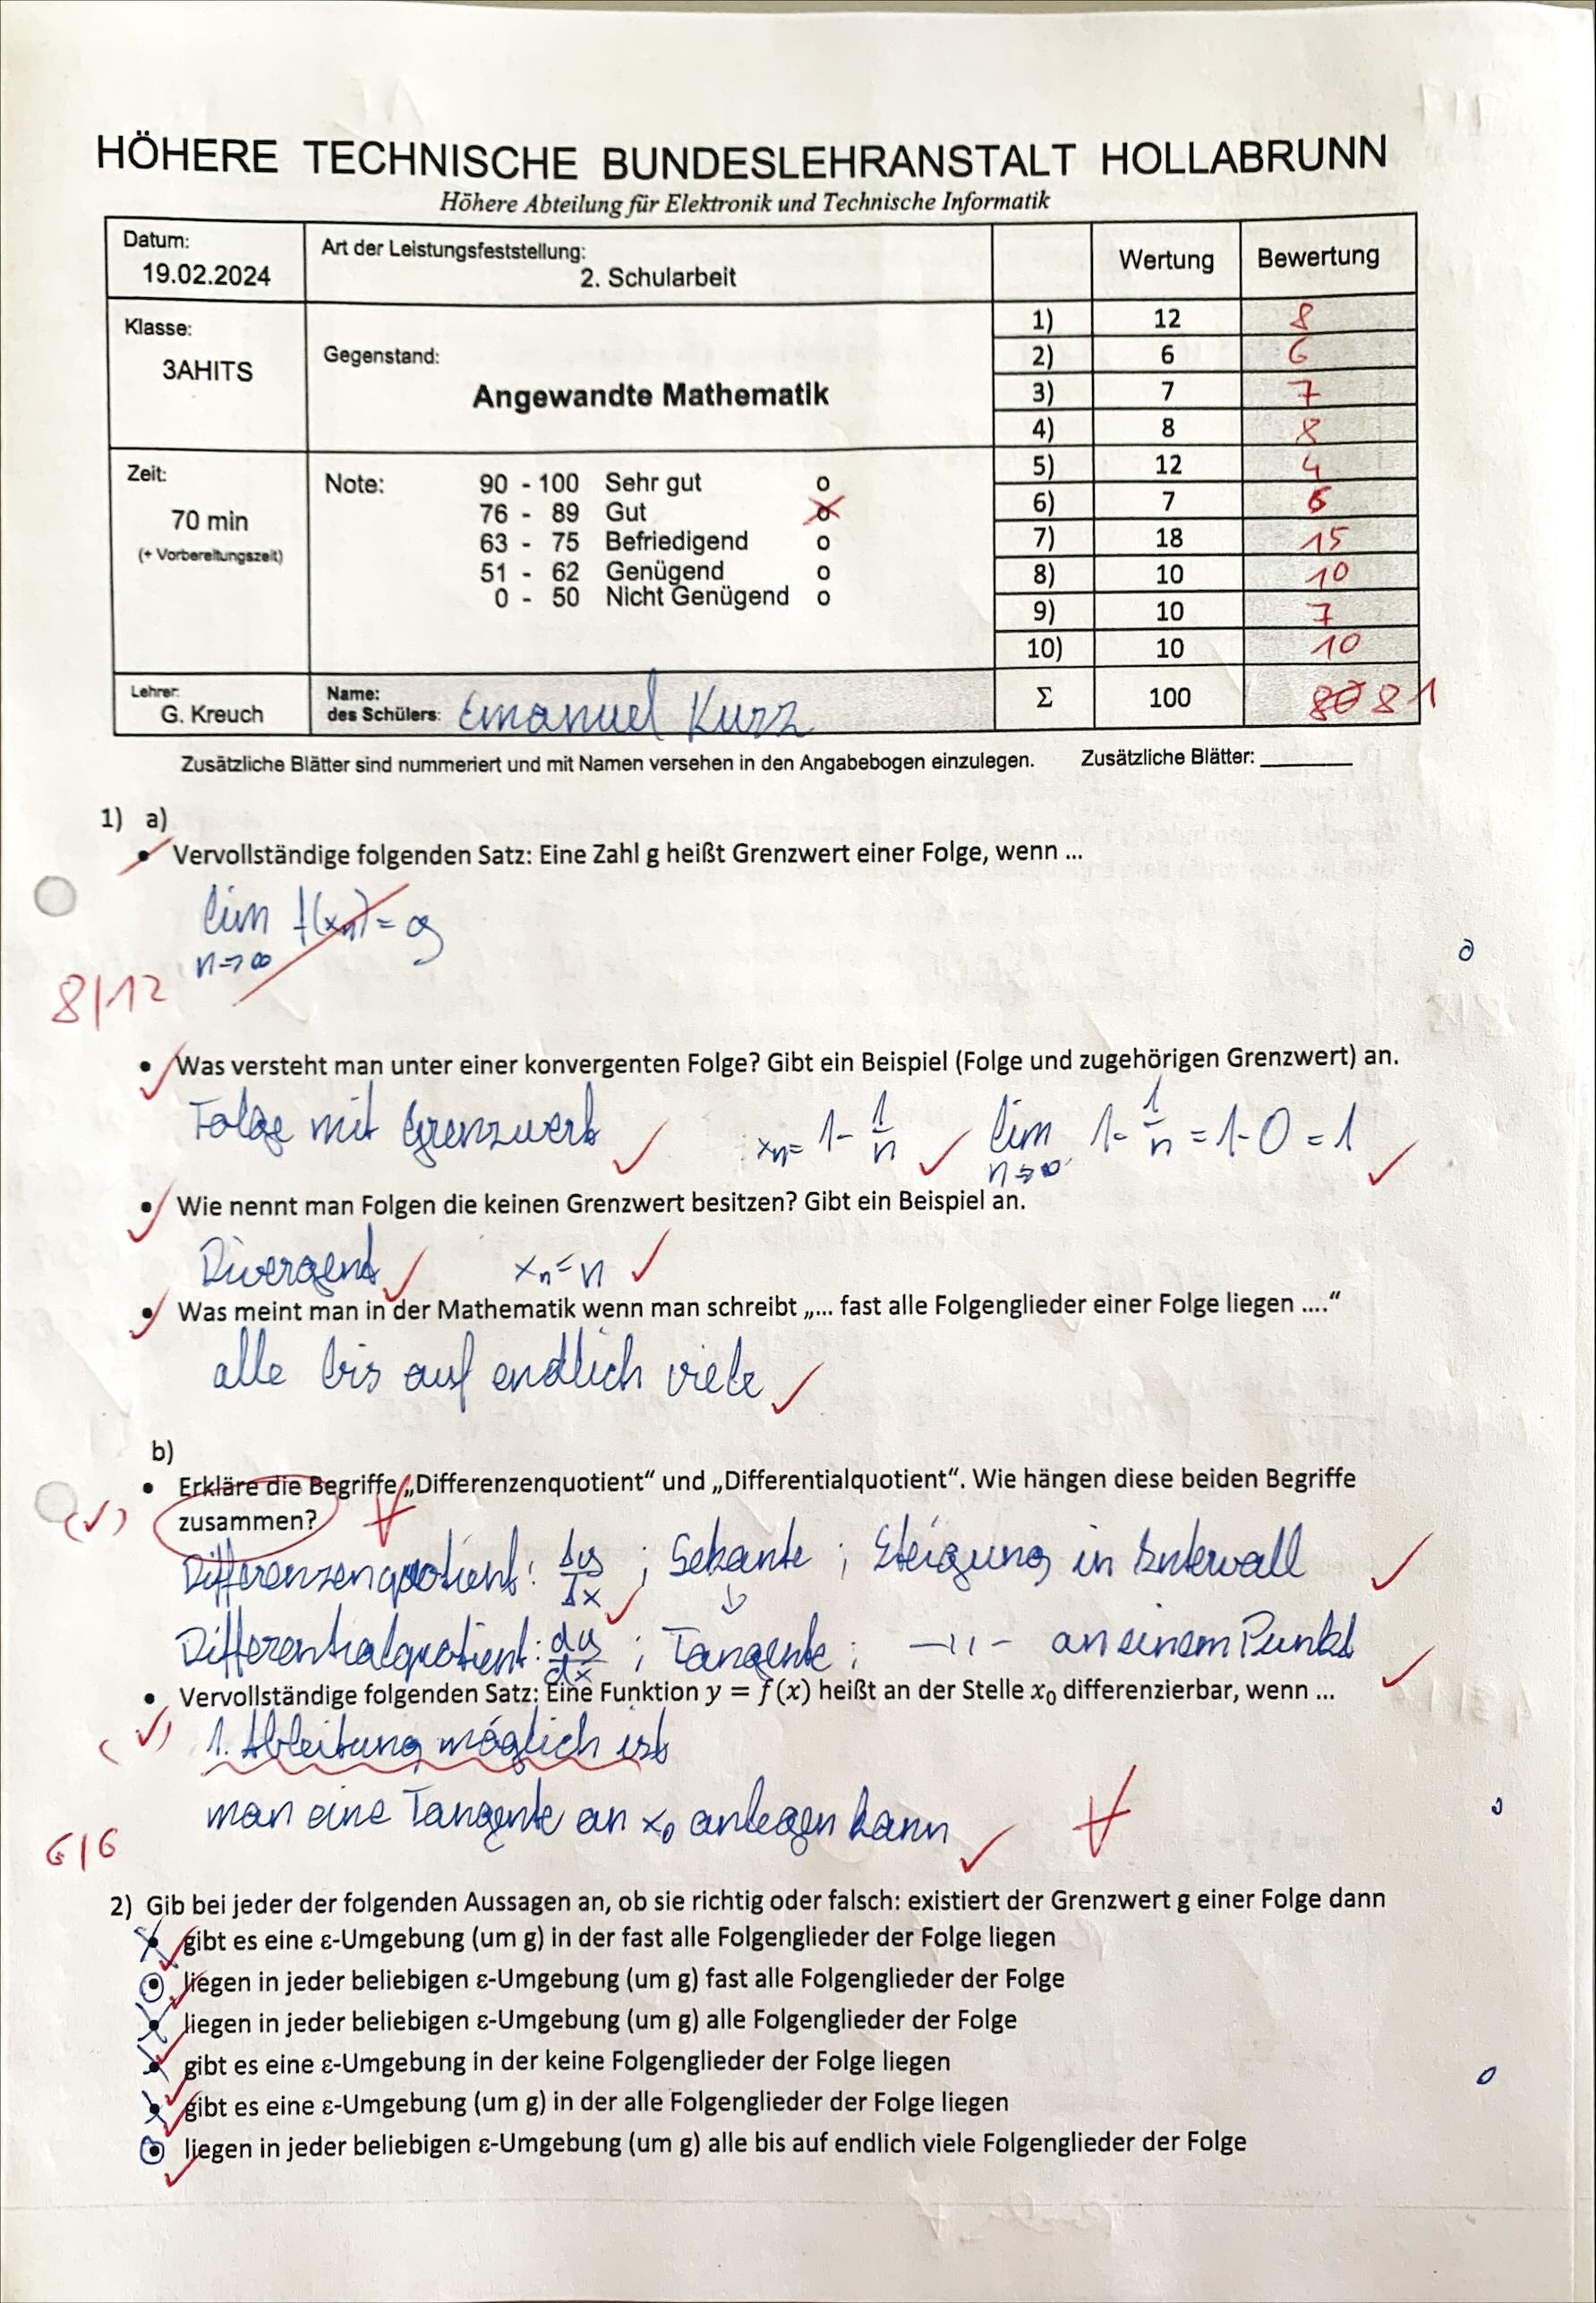 HÖHERE TECHNISCHE BUNDESLEHRANSTALT HOLLABRUNN
Höhere Abteilung für Elektronik und Technische Informatik
Datum:
19.02.2024
Art der Leistungsfeststellung:
2. Schularbeit
Wertung Bewertung
Klasse:
3AHITS
Gegenstand:
Angewandte Mathematik
1) 12 8
2) 6 6
3) 7 7
4) 8 8
5) 12 4
6) 7 6
7) 18 15
8) 10 10
9) 10 7
10) 10 10
Zeit:
70 min
(+ Vorbereitungszeit)
Note: 90 - 100 Sehr gut o
76 - 89 Gut o
63 - 75 Befriedigend o
51 - 62 Genügend o
0 - 50 Nicht Genügend o
Lehrer:
G. Kreuch
Name:
des Schülers: Emanuel Kurz
Σ 100 80 81
Zusätzliche Blätter sind nummeriert und mit Namen versehen in den Angabebogen einzulegen. Zusätzliche Blätter: ______
1) a)
• Vervollständige folgenden Satz: Eine Zahl g heißt Grenzwert einer Folge, wenn ...
lim f(xn) = g
n→∞
8/12
• Was versteht man unter einer konvergenten Folge? Gibt ein Beispiel (Folge und zugehörigen Grenzwert) an.
Folge mit Grenzwert xn= 1- 1/n lim n→∞ 1- 1/n = 1-0 = 1
• Wie nennt man Folgen die keinen Grenzwert besitzen? Gibt ein Beispiel an.
Divergent xn=n
• Was meint man in der Mathematik wenn man schreibt „... fast alle Folgenglieder einer Folge liegen ....“
alle bis auf endlich viele
b)
• Erkläre die Begriffe „Differenzenquotient“ und „Differentialquotient“. Wie hängen diese beiden Begriffe
zusammen?
Differenzenquotient: Δy/Δx ; Sekante ; Steigung in Intervall
↓
Differentialquotient: dy/dx ; Tangente ; -"- an einem Punkt
• Vervollständige folgenden Satz: Eine Funktion y = f(x) heißt an der Stelle x₀ differenzierbar, wenn ...
1. Ableitung möglich ist
man eine Tangente an x₀ anlegen kann
6/6
2) Gib bei jeder der folgenden Aussagen an, ob sie richtig oder falsch: existiert der Grenzwert g einer Folge dann
• gibt es eine ε-Umgebung (um g) in der fast alle Folgenglieder der Folge liegen
• liegen in jeder beliebigen ε-Umgebung (um g) fast alle Folgenglieder der Folge
• liegen in jeder beliebigen ε-Umgebung (um g) alle Folgenglieder der Folge
• gibt es eine ε-Umgebung in der keine Folgenglieder der Folge liegen
• gibt es eine ε-Umgebung (um g) in der alle Folgenglieder der Folge liegen
• liegen in jeder beliebigen ε-Umgebung (um g) alle bis auf endlich viele Folgenglieder der Folge